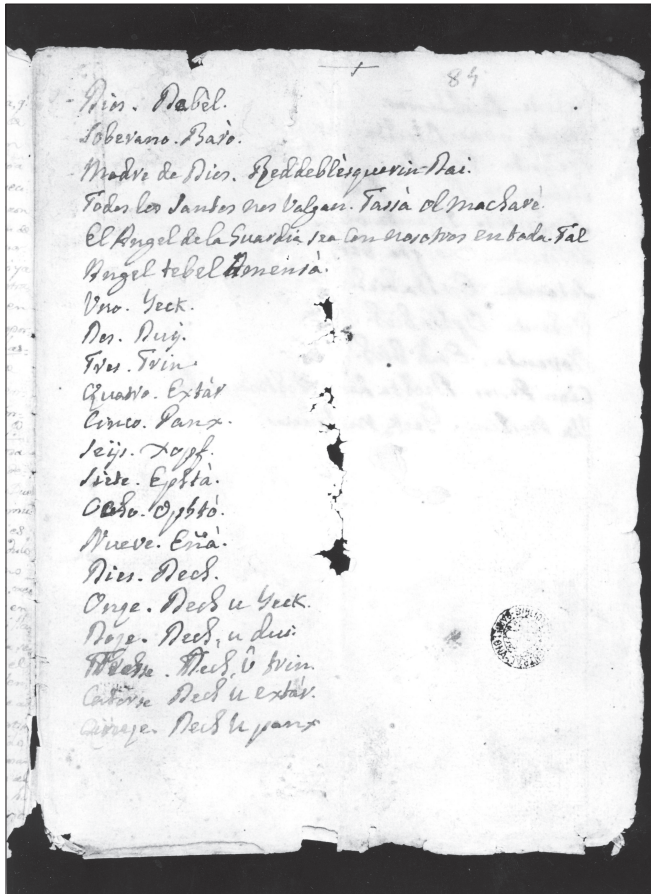 84
Dios. Debel.
Soberano. Barò.
Madre de Dios. Beddeblèsquerin Dai.
Todos los Santos nos Valgan. Tassà ol machavè.
El Angel de la Guardia sea con nosotros en toda. Tal
Angel tebel Amensà.
Uno. Yeck.
Dos. Duy.
Tres. Trin.
Quatro. Extàr
Cinco. Panx.
Seijs. Xopf.
Siete. Ephtà.
Ocho. Ophtò.
Nueve. Eñà.
Dies. Dech.
Onze. Dech u Yeck.
Doze. Dech, u dui.
Dech û trin.
Catorse Dech u extàr.
Dech u panx